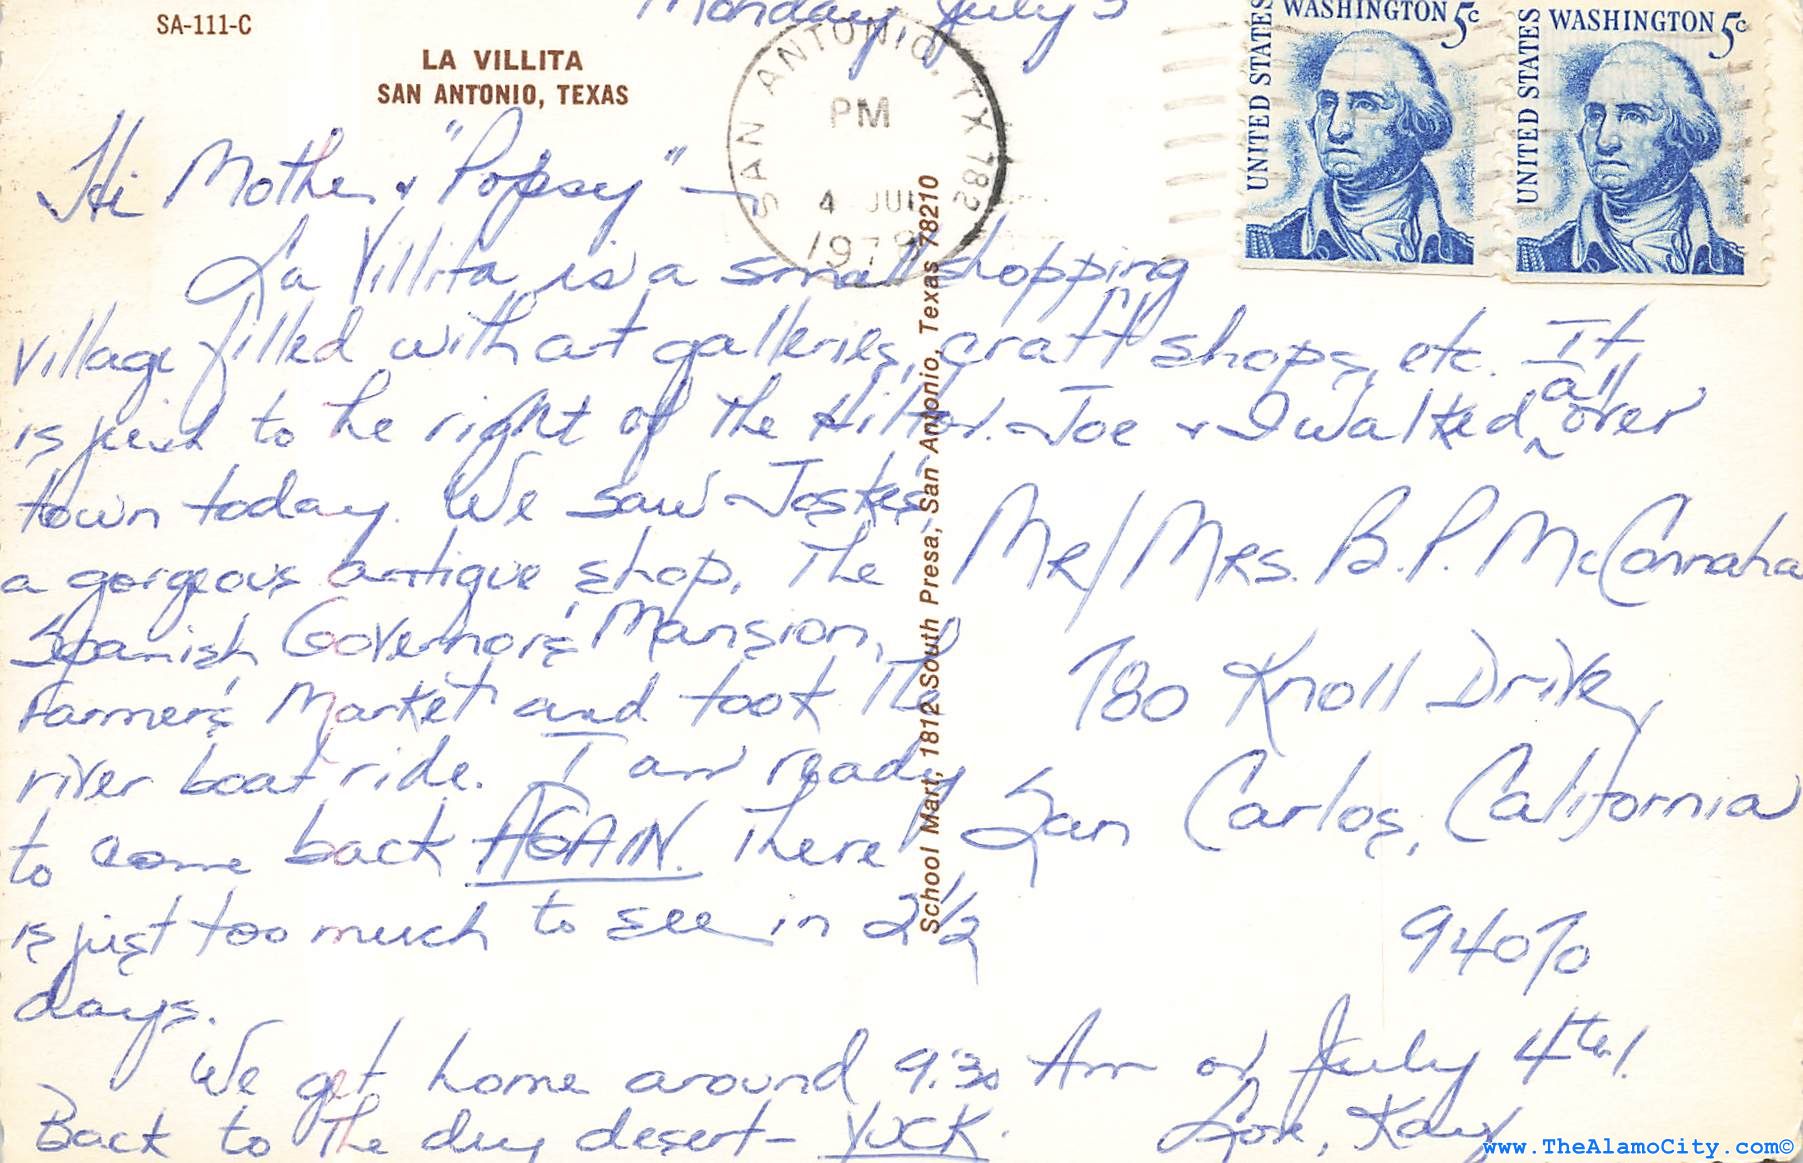 SA-111-C
LA VILLITA
SAN ANTONIO, TEXAS
Monday, July 3
SAN ANTONIO, TX 782
PM
4 JUL
UNITED STATES WASHINGTON 5c
UNITED STATES WASHINGTON 5c
Hi Mother & "Popsy" —
La Villita is a small shopping
village filled with art galleries, craft shops, etc. It
is just to the right of the Hilton. Joe & I walked all over
town today. We saw Joske's,
a gorgeous antique shop, the
Spanish Governor's Mansion,
Farmer's Market and took the
river boat ride. I am ready
to come back AGAIN. There
is just too much to see in 2 1/2
days.
We get home around 9:30 Am on July 4th!
Back to the dry desert — YUCK.
Love, Kay
School Mart, 1812 South Presa, San Antonio, Texas 78210
MR/MRS. B.P. McConnaha
780 Knoll Drive
San Carlos, California
94070
www.TheAlamoCity.com©